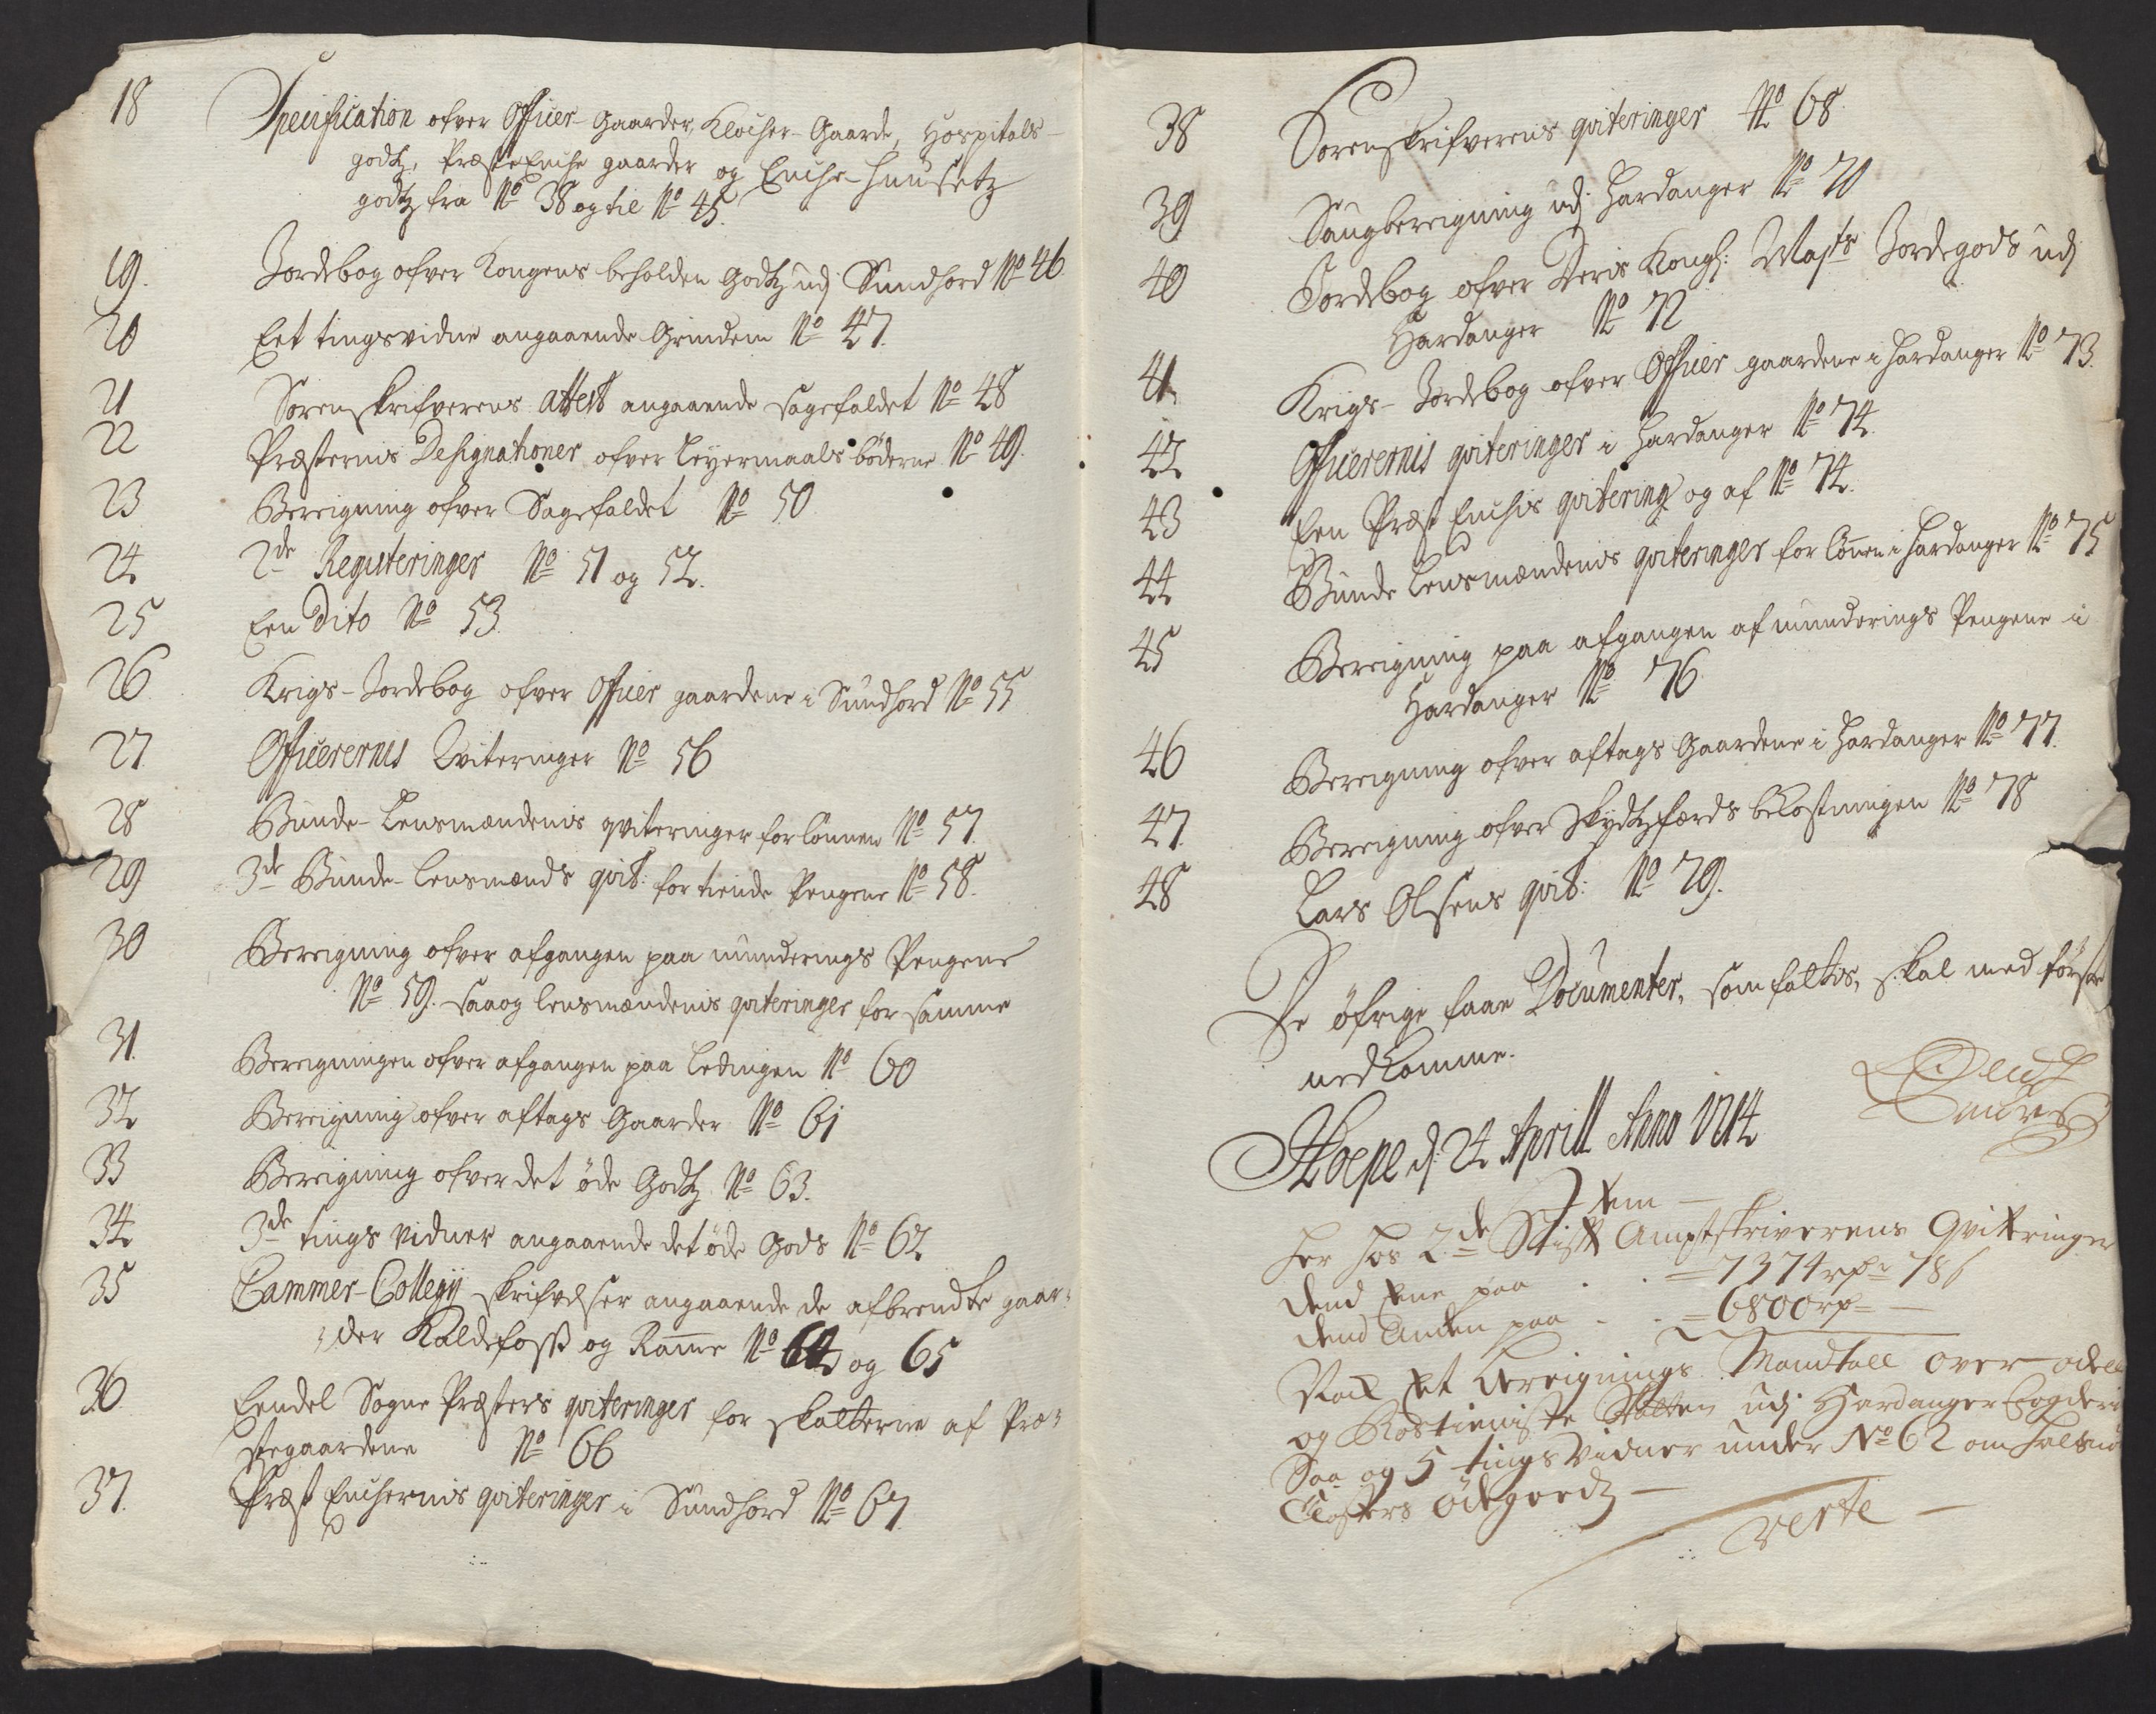 18 Specification ofver Officer-Gaarder, Klocher-Gaarde, Hospitals-
godtz, Præste Enche gaarder og Enche-Huusetz
godtz fra No 38 og til No 45.
19. Jordebog ofver Kongens beholden Godtz udj Sundhord No 46
20 Eet tingsvidne angaaende Grindem No 47.
21 Sorenskrifverens attest angaaende sagefaldet No 48
22 Præsternis Designationer ofver Leyermaals bøderne No 49.
23 Beregning ofver Sagefaldet No 50
24 2de Registeringer No 51 og 52.
25 Een Dito No 53
26 Krigs-Jordebog ofver Officer gaardene i Sundhord No 55
27 Officerernis Qviteringer No 56
28 Bunde-Lensmændenis qviteringer for lønnen No 57.
29 3de Bunde-Lensmænds qvit: for tiende Pengene No 58.
30 Beregning ofver afgangen paa munderings Pengene
No 59. saa og lensmændenis qviteringer for samme
31. Beregningen ofver afgangen paa Ledingen No 60
32 Beregning ofver aftags Gaarder No 61
33 Beregning ofver det øde Godtz No 63.
34 3de tings Vidner angaaende det øde Gods No 62
35 Cammer-Collegij skrifvelser angaaende de afbrendte gaar-
der Kaldefoss og Ramme No 64 og 65
36 Eendel Sogne Præsters qviteringer for skatterne af Præ-
stegaardene No 66
37. Præst Enchernis qviteringer i Sundhord No 67
38 Sorenskrifverens qviteringer No 68
39 Saugberegning udj Hardanger No 70
40 Jordebog ofver Deris Kongl: Mayts Jordegods udj
Hardanger No 72
41. Krigs-Jordebog ofver Officer gaardene i Hardanger No 73.
42 Officerernis qviteringer i Hardanger No 74.
43 Een Præst Enchis qvitering og af No 74.
44 Bunde Lensmændenis qviteringer for lønen i Hardanger No 75
45 Beregning paa afgangen af munderings Pengene i
Hardanger No 76
46 Beregning ofver aftags Gaardene i Hardanger No 77.
47. Beregning ofver skydtzferds bekostningen No 78
48 Lars Olsens qvit: No 79.
De øfrige faae Documenter, som feiles, skal med første
nedkomme.
Hoepe d: 24 Aprill Anno 1714
Item
her hos 2de Stift Amptskriverens Qvitteringer
dend Ene paa = 7374 rdr 78 s
dend Anden paa = 6800 rd
Nock Et Bereignings Mandtall over odell
og Rostieniste Skatten udj Hardanger Fogderi
Saa og 5 tings Vidner under No 62 om Halsnø
Closters ødegordz
verte